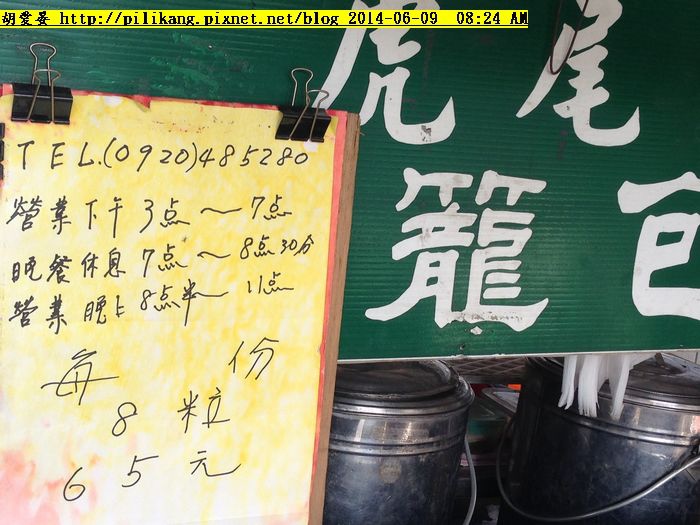 胡愛晏 http://pilikang.pixnet.net/blog 2014-06-09 08:24 AM
TEL.(0920)485280
營業下午3点～7点
晚餐休息7点～8点30分
營業晚上8点半～11点
每份
8粒
65元
虎尾
籠包